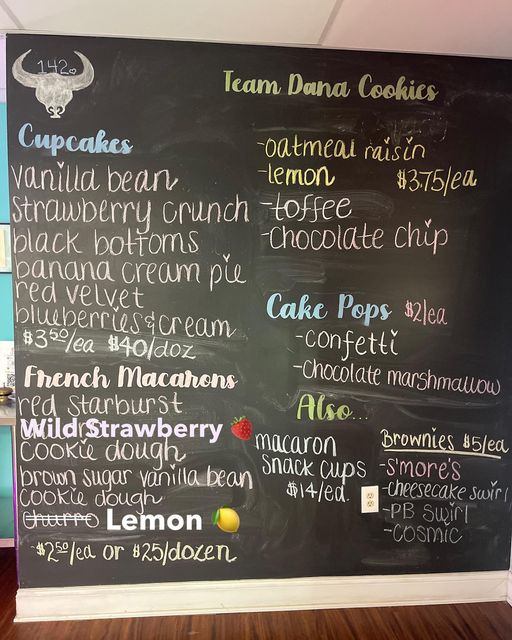 142
Team Dana Cookies
-oatmeal raisin
-lemon $3.75/ea
-toffee
-chocolate chip
Cupcakes
vanilla bean
strawberry crunch
black bottoms
banana cream pie
red velvet
blueberries & cream
$3.50/ea $40/doz
Cake Pops $2/ea
-confetti
-chocolate marshmallow
French Macarons
red starburst
Wild Strawberry 🍓
cookie dough
brown sugar vanilla bean
cookie dough
churro Lemon 🍋
-$2.50/ea or $25/dozen
Also...
macaron
snack cups
$14/ea.
Brownies $5/ea
-s'more's
-cheesecake swirl
-PB swirl
-cosmic